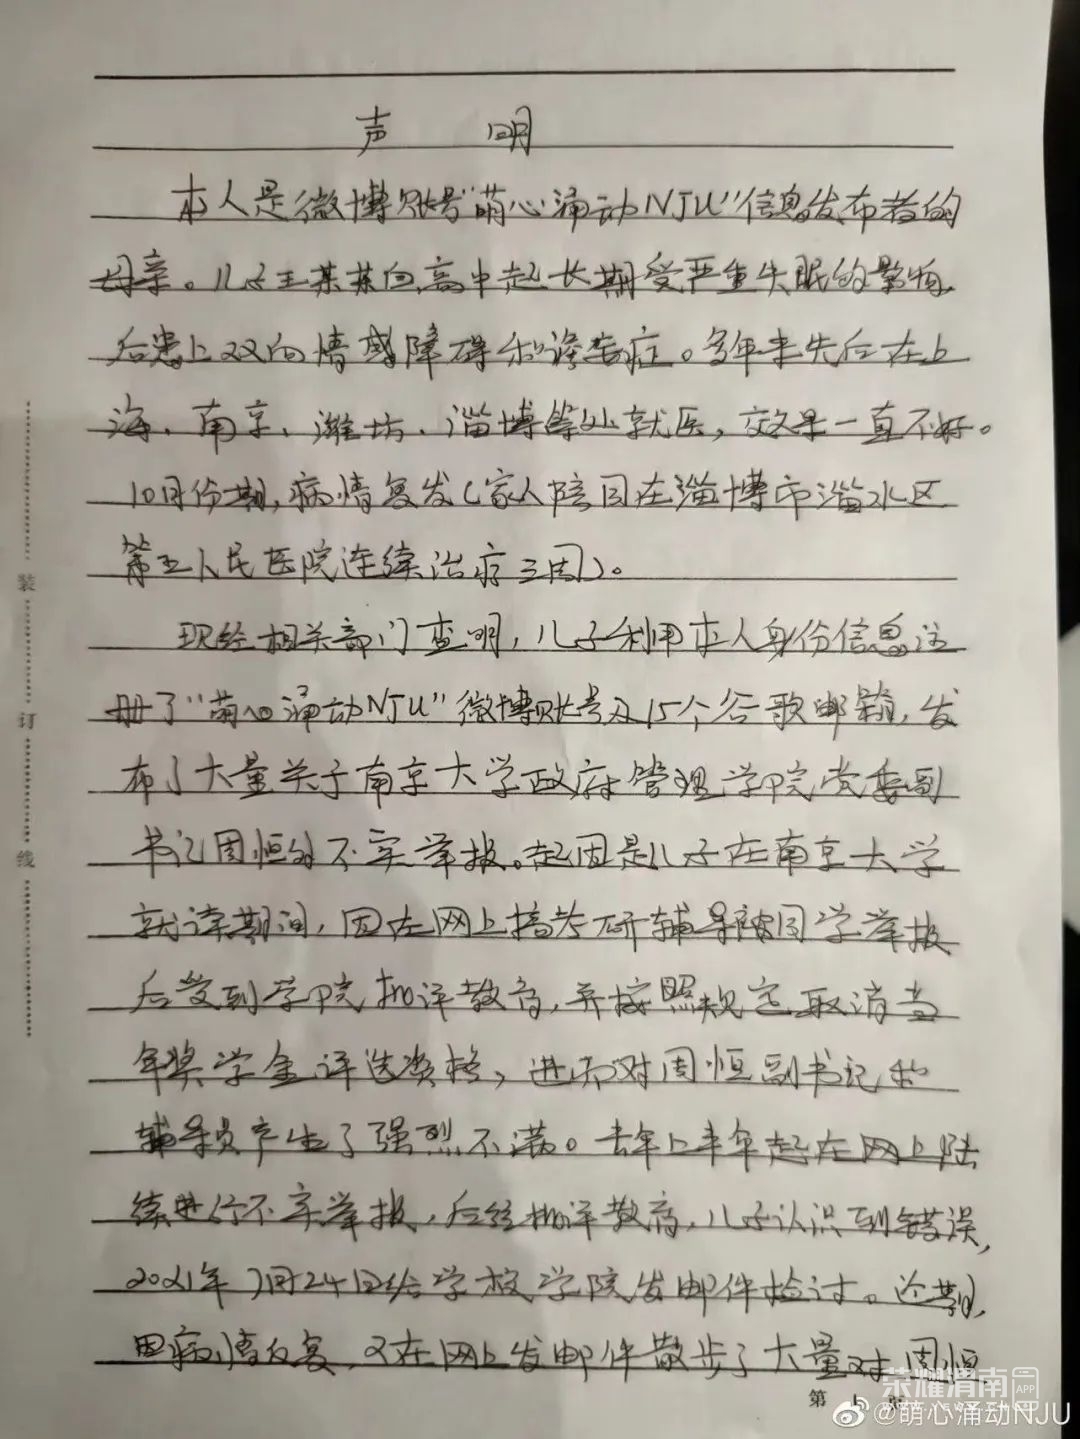 声 明
本人是微博账号"萌心涌动NJU"信息发布者的
母亲。儿子王某某自高中起长期受严重失眠的影响，
后患上双向情感障碍和谵妄症。多年来先后在上
海、南京、潍坊、淄博等处就医，效果一直不好。
10月份期，病情复发（家人陪同在淄博市淄水区
第五人民医院连续治疗三周）。
现经相关部门查明，儿子利用本人身份信息注
册了"萌心涌动NJU"微博账号及15个谷歌邮箱，发
布了大量关于南京大学政府管理学院党委副
书记周恒的不实举报。起因是儿子在南京大学
就读期间，因在网上搞考研辅导被同学举报
后受到学院批评教育，并按照规定取消当
年奖学金评选资格，进而对周恒副书记和
辅导员产生了强烈不满。去年上半年起在网上陆
续进行不实举报，后经批评教育，儿子认识到错误，
2021年7月24日给学校学院发邮件检讨。近期，
因病情反复，又在网上发邮件散步了大量对周恒
装
订
线
第 页
荣耀渭南 APP
@萌心涌动NJU